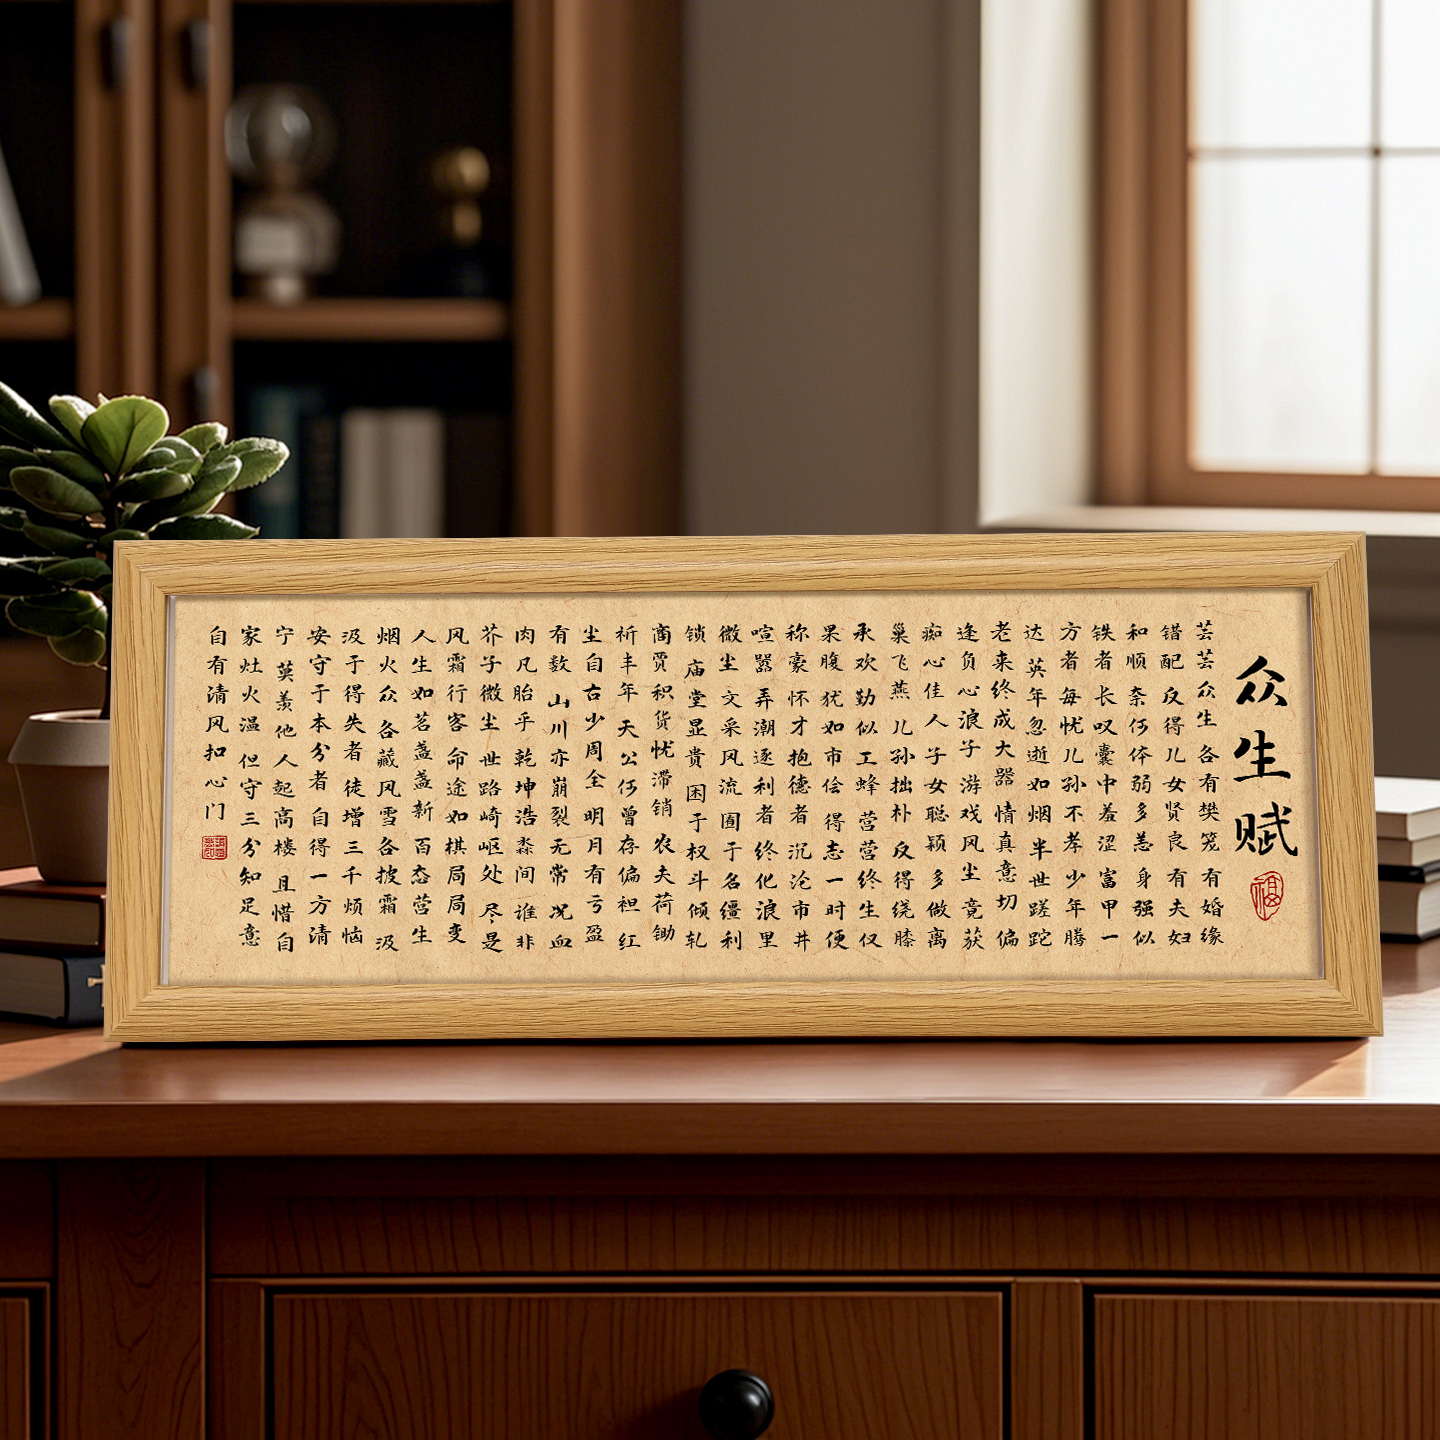 众生赋
芸芸众生 各有樊笼 有婚缘
错配 反得儿女贤良 有夫妇
和顺 奈何体弱多恙 身强似
铁者 长叹囊中羞涩 富甲一
方者 每忧儿孙不孝 少年腾
达 英年忽逝如烟 半世蹉跎
老来终成大器 情真意切 偏
逢负心浪子 游戏风尘 竟获
痴心佳人 子女聪颖 多做离
巢飞燕 儿孙拙朴 反得绕膝
承欢 勤似工蜂 营营终生仅
果腹 犹如市侩 得志一时便
称豪 怀才抱德者 沉沦市井
喧嚣 弄潮逐利者 终化浪里
微尘 文采风流 囿于名缰利
锁 庙堂显贵 困于权斗倾轧
商贾积货忧滞销 农夫荷锄
祈丰年 天公何曾存偏袒 红
尘自古少周全 明月有亏盈
有数 山川亦崩裂无常 况血
肉凡胎乎 乾坤浩淼间 谁非
芥子微尘 世路崎岖处 尽是
风霜行客 命途如棋局局变
人生如茗盏盏新 百态营生
烟火众 各藏风雪各披霜 汲
汲于得失者 徒增三千烦恼
安守于本分者 自得一方清
宁 莫羡他人起高楼 且惜自
家灶火温 但守三分知足意
自有清风扣心门